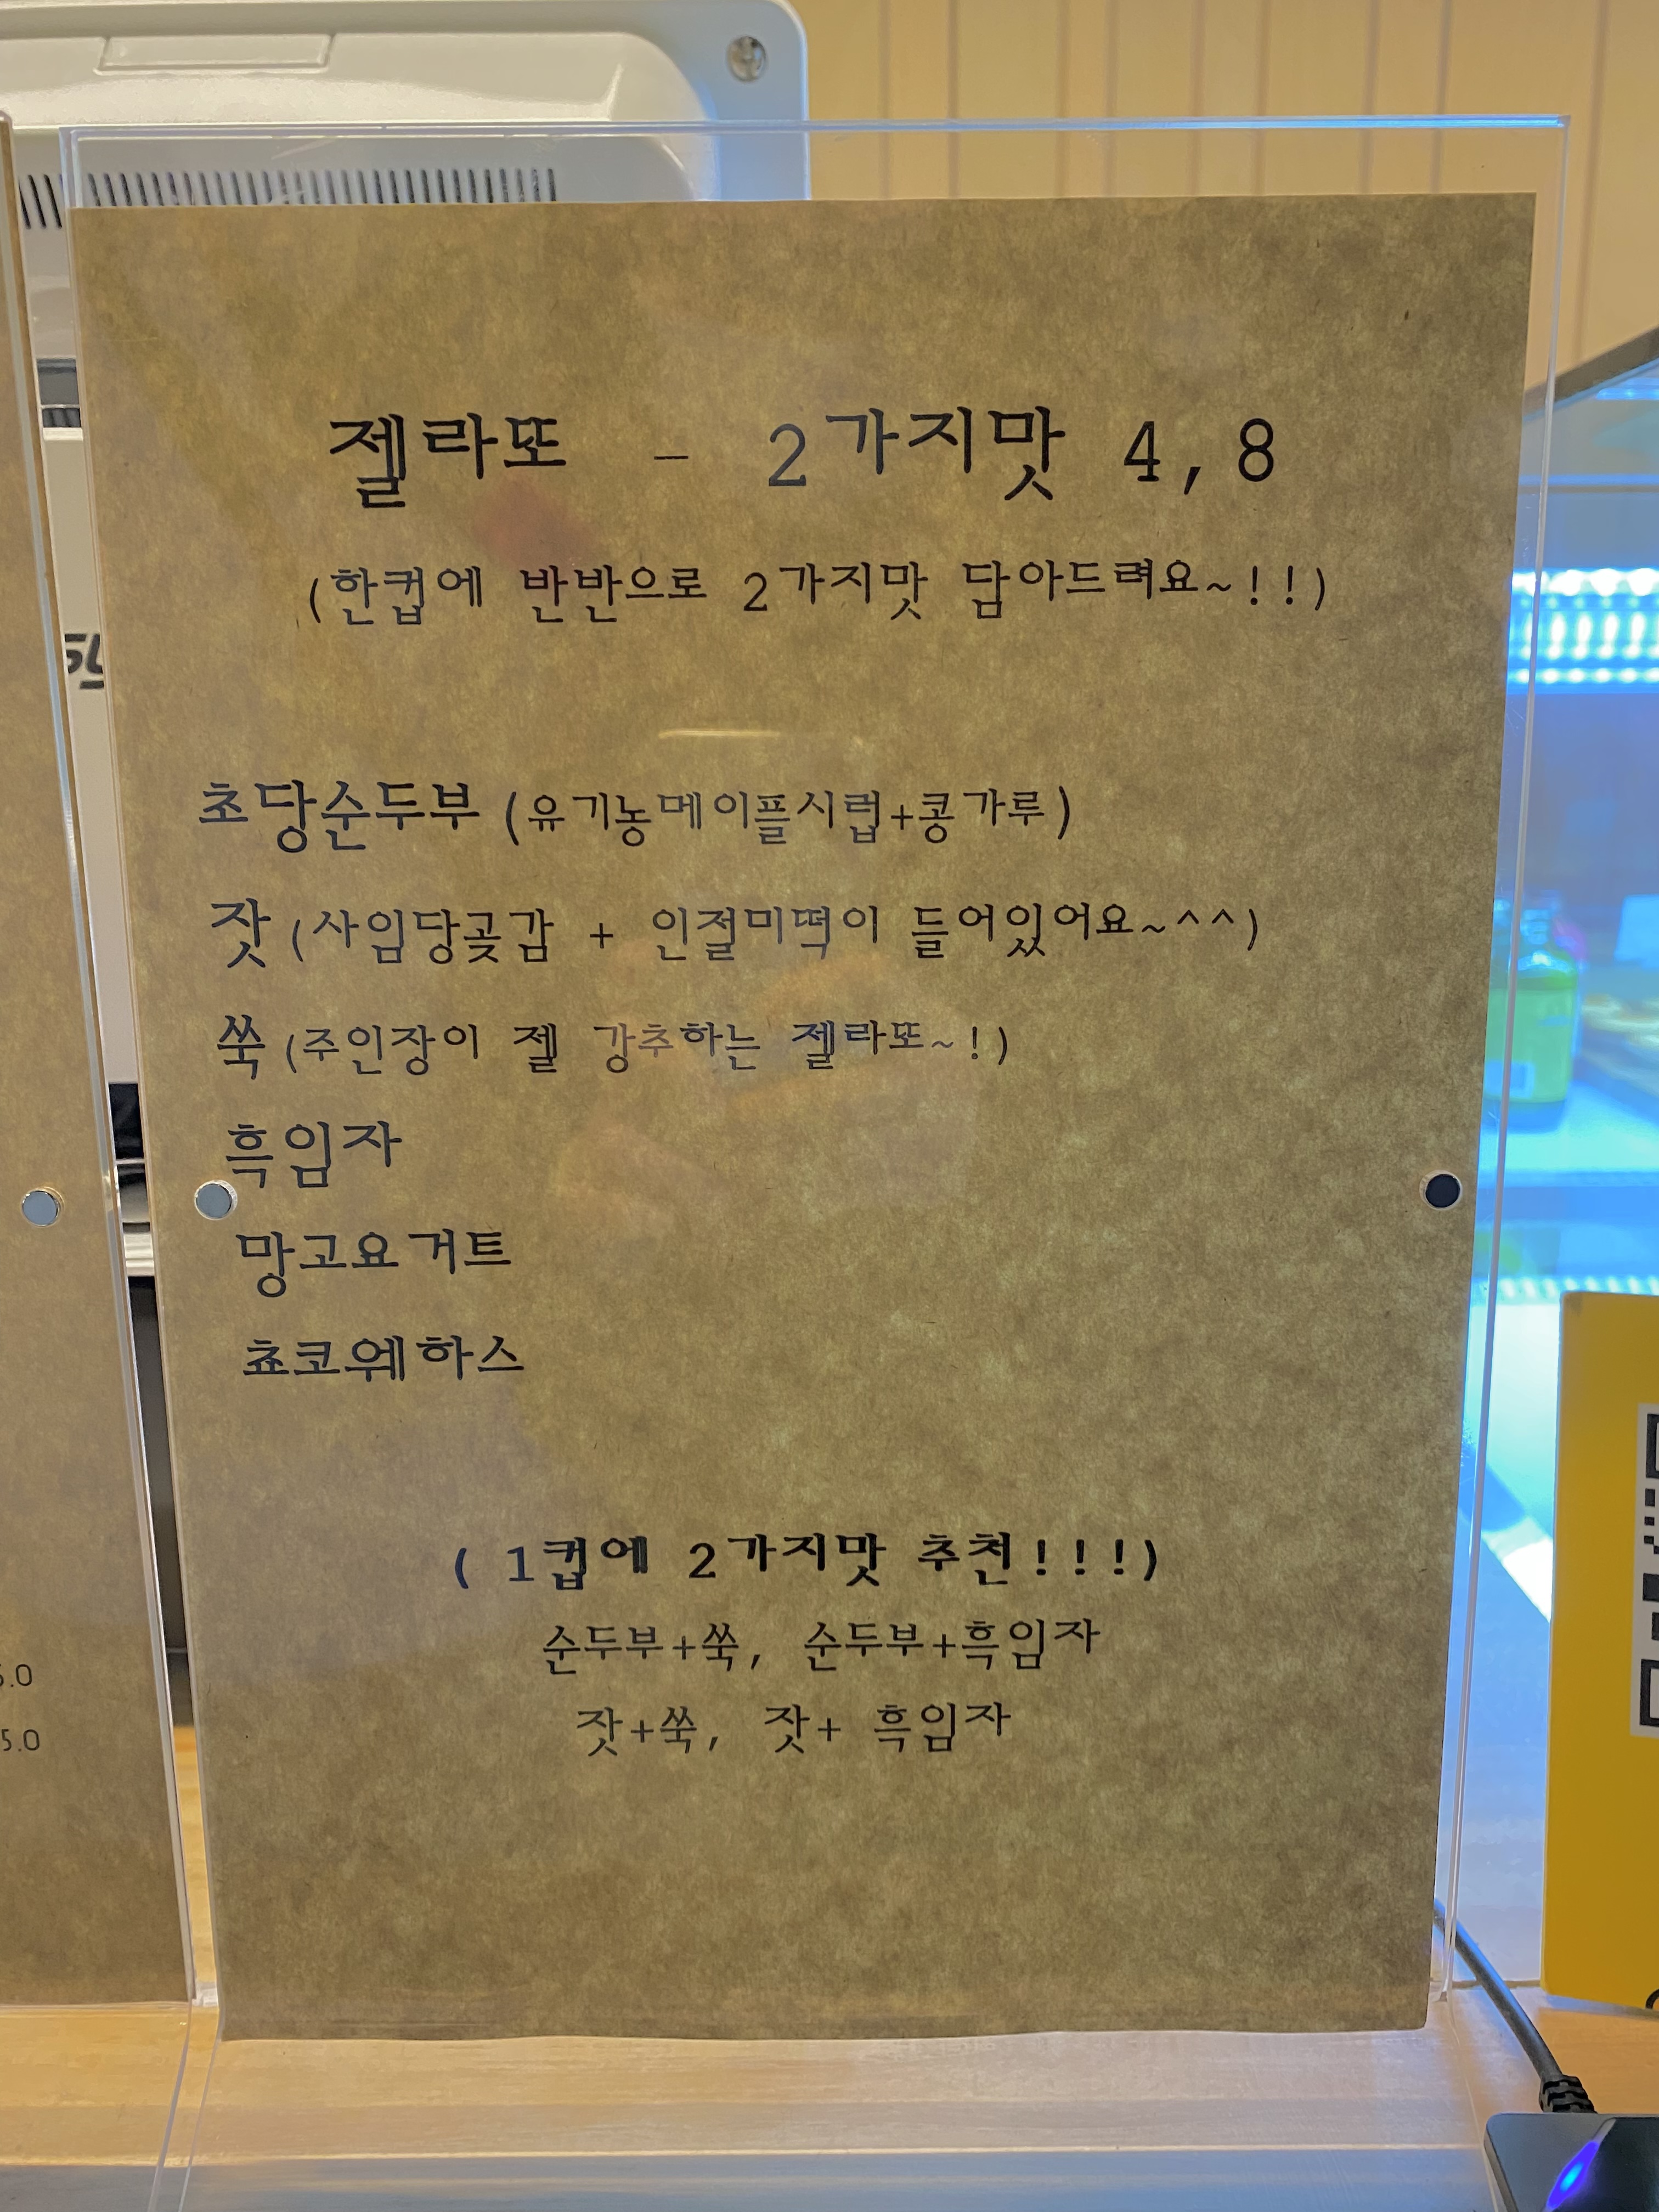 젤라또 - 2가지맛 4,8
(한컵에 반반으로 2가지맛 담아드려요~!!)
초당순두부 (유기농메이플시럽+콩가루)
잣 (사임당곶감 + 인절미떡이 들어있어요~^^)
쑥 (주인장이 젤 강추하는 젤라또~!)
흑임자
망고요거트
쵸코웨하스
( 1컵에 2가지맛 추천!!!)
순두부+쑥, 순두부+흑임자
잣+쑥, 잣+ 흑임자
5.0